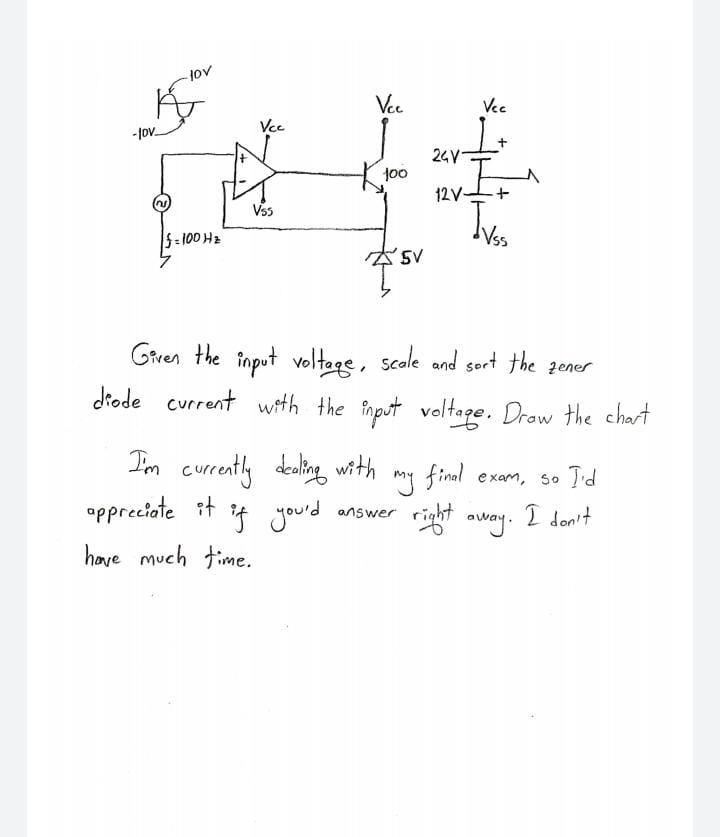 10V
-10V
Vcc
Vcc
Vcc
+
24V
+
-
100
12V
+
Vss
Vss
f=100Hz
5V
Given the input voltage, scale and sort the zener
diode current with the input voltage. Draw the chart
I'm currently dealing with my final exam, so I'd
appreciate it if you'd answer right away. I don't
have much time.